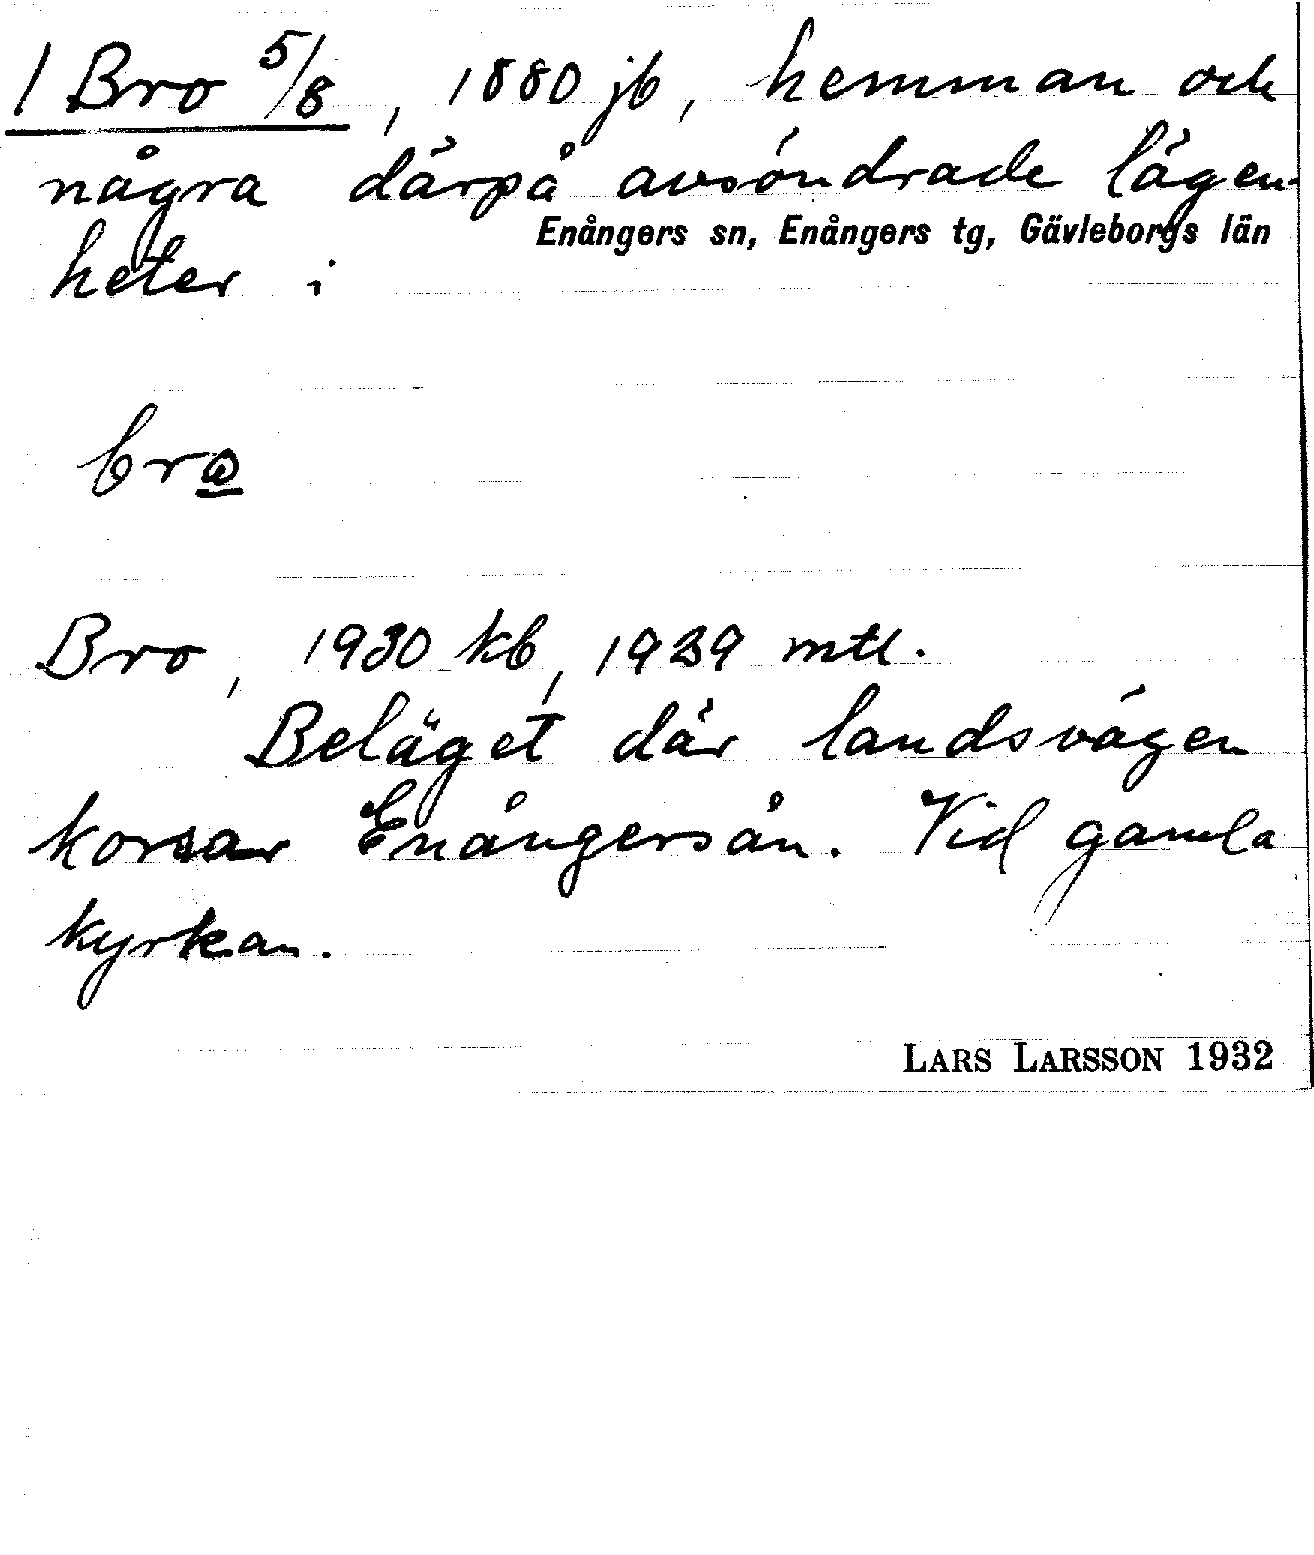 1 Bro 5/8, 1880 jb, hemman och
några därpå avsöndrade lägen-
Enångers sn, Enångers tg, Gävleborgs län
heter i
bro
Bro, 1930 kb, 1939 mtl.
Beläget där landsvägen
korsar Enångersån. Vid gamla
kyrkan.
LARS LARSSON 1932